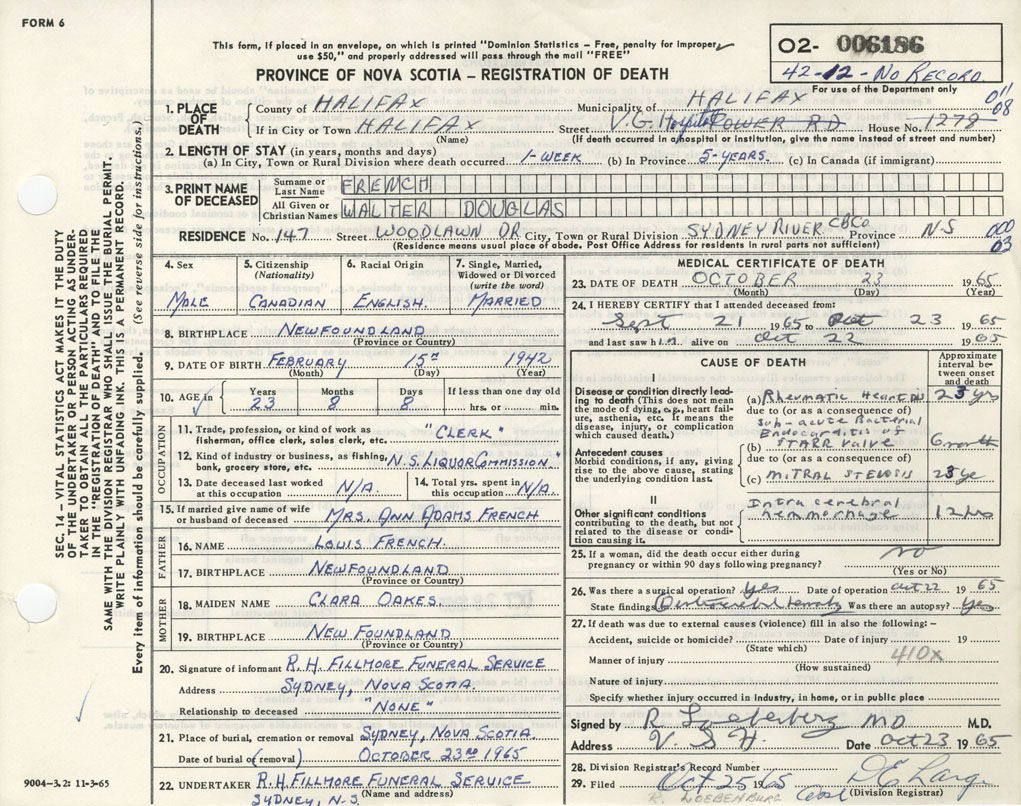 FORM 6
This form, if placed in an envelope, on which is printed "Dominion Statistics – Free, penalty for improper
use $50," and properly addressed will pass through the mail "FREE"
PROVINCE OF NOVA SCOTIA – REGISTRATION OF DEATH
02- 006186
42-12-No RECORD.
For use of the Department only
011
08
1. PLACE OF DEATH
County of HALIFAX
Municipality of HALIFAX
If in City or Town HALIFAX
(Name)
Street V.G. Hospital POWER RD House No. 1279
(If death occurred in a hospital or institution, give name instead of street and number)
2. LENGTH OF STAY (in years, months and days)
(a) In City, Town or Rural Division where death occurred 1-WEEK (b) In Province 5-YEARS. (c) In Canada (if immigrant)
3. PRINT NAME OF DECEASED
Surname or Last Name FRENCH
All Given or Christian Names WALTER DOUGLAS
RESIDENCE No. 147 Street WOODLAWN DR City, Town or Rural Division SYDNEY RIVER CB Co. Province N-S
000
03
(Residence means usual place of abode. Post Office Address for residents in rural parts not sufficient)
4. Sex
MALE
5. Citizenship (Nationality)
CANADIAN
6. Racial Origin
ENGLISH.
7. Single, Married, Widowed or Divorced (write the word)
MARRIED
8. BIRTHPLACE NEWFOUNDLAND
(Province or Country)
9. DATE OF BIRTH FEBRUARY 15TH 1942
(Month) (Day) (Year)
10. AGE in
Years Months Days If less than one day old
23 8 8 hrs. or min.
OCCUPATION
11. Trade, profession, or kind of work as
fisherman, office clerk, sales clerk, etc. "CLERK"
12. Kind of industry or business, as fishing,
bank, grocery store, etc. N.S. LIQUOR COMMISSION."
13. Date deceased last worked
at this occupation N/A.
14. Total yrs. spent in
this occupation N/A.
15. If married give name of wife
or husband of deceased MRS. ANN ADAMS FRENCH
FATHER
16. NAME LOUIS FRENCH.
17. BIRTHPLACE NEWFOUNDLAND
(Province or Country)
MOTHER
18. MAIDEN NAME CLARA OAKES.
19. BIRTHPLACE NEW FOUNDLAND
(Province or Country)
20. Signature of informant R. H. FILLMORE FUNERAL SERVICE
Address SYDNEY, NOVA SCOTIA.
Relationship to deceased "NONE"
21. Place of burial, cremation or removal SYDNEY, NOVA SCOTIA.
Date of burial or removal) OCTOBER 23RD 1965
22. UNDERTAKER R. H. FILLMORE FUNERAL SERVICE
(Name and address)
SYDNEY, N.S.
MEDICAL CERTIFICATE OF DEATH
23. DATE OF DEATH OCTOBER 23 1965
(Month) (Day) (Year)
24. I HEREBY CERTIFY that I attended deceased from:
Sept 21 1965 to Oct 23 1965
and last saw him alive on Oct 22 1965
CAUSE OF DEATH
Approximate interval between onset and death
I
Disease or condition directly leading to death (This does not mean the mode of dying, e.g., heart failure, asthenia, etc. It means the disease, injury, or complication which caused death.)
(a) Rheumatic Heart Dis 23 yrs
due to (or as a consequence of)
Sub-acute Bacterial
Endocarditis of
(b) STARR valve 6 month
due to (or as a consequence of)
Antecedent causes
Morbid conditions, if any, giving rise to the above cause, stating the underlying condition last.
(c) MITRAL STENOSIS 23 ye
II
Other significant conditions
contributing to the death, but not related to the disease or condition causing it.
Intra cerebral
hemmorhage 12 hrs
25. If a woman, did the death occur either during
pregnancy or within 90 days following pregnancy? no
(Yes or No)
26. Was there a surgical operation? Yes Date of operation Oct 22 1965
State findings Was there an autopsy? Yes
27. If death was due to external causes (violence) fill in also the following: –
Accident, suicide or homicide? Date of injury 19
(State which)
410x
Manner of injury
(How sustained)
Nature of injury
Specify whether injury occurred in industry, in home, or in public place
Signed by MD M.D.
Address V. G. H. Date Oct 23 1965
28. Division Registrar's Record Number
29. Filed Oct 25 1965
(Division Registrar)
R. LOEBENBURG
SEC. 14 – VITAL STATISTICS ACT MAKES IT THE DUTY
OF THE UNDERTAKER OR PERSON ACTING AS UNDER-
TAKER TO OBTAIN ALL THE PARTICULARS REQUIRED
IN THE "REGISTRATION OF DEATH" AND TO FILE THE
SAME WITH THE DIVISION REGISTRAR WHO SHALL ISSUE THE BURIAL PERMIT.
WRITE PLAINLY WITH UNFADING INK. THIS IS A PERMANENT RECORD.
Every item of information should be carefully supplied. (See reverse side for instructions.)
9004-3.2: 11-3-65